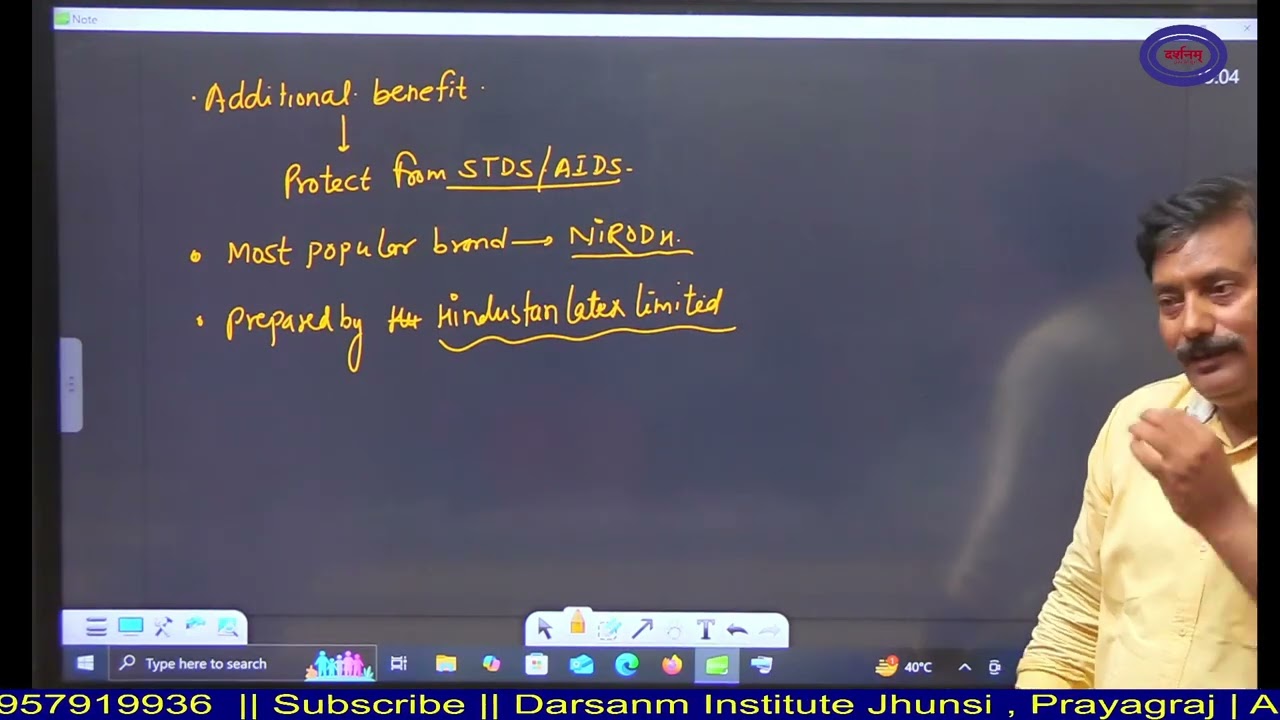 Note
दर्शनम्
.04
. Additional. benefit.
↓
Protect from STDS/AIDS.
• Most popular brand → NiRODH.
• Prepared by Hindustan latex limited
Type here to search
T
40°C
957919936 || Subscribe || Darsanm Institute Jhunsi , Prayagraj | A